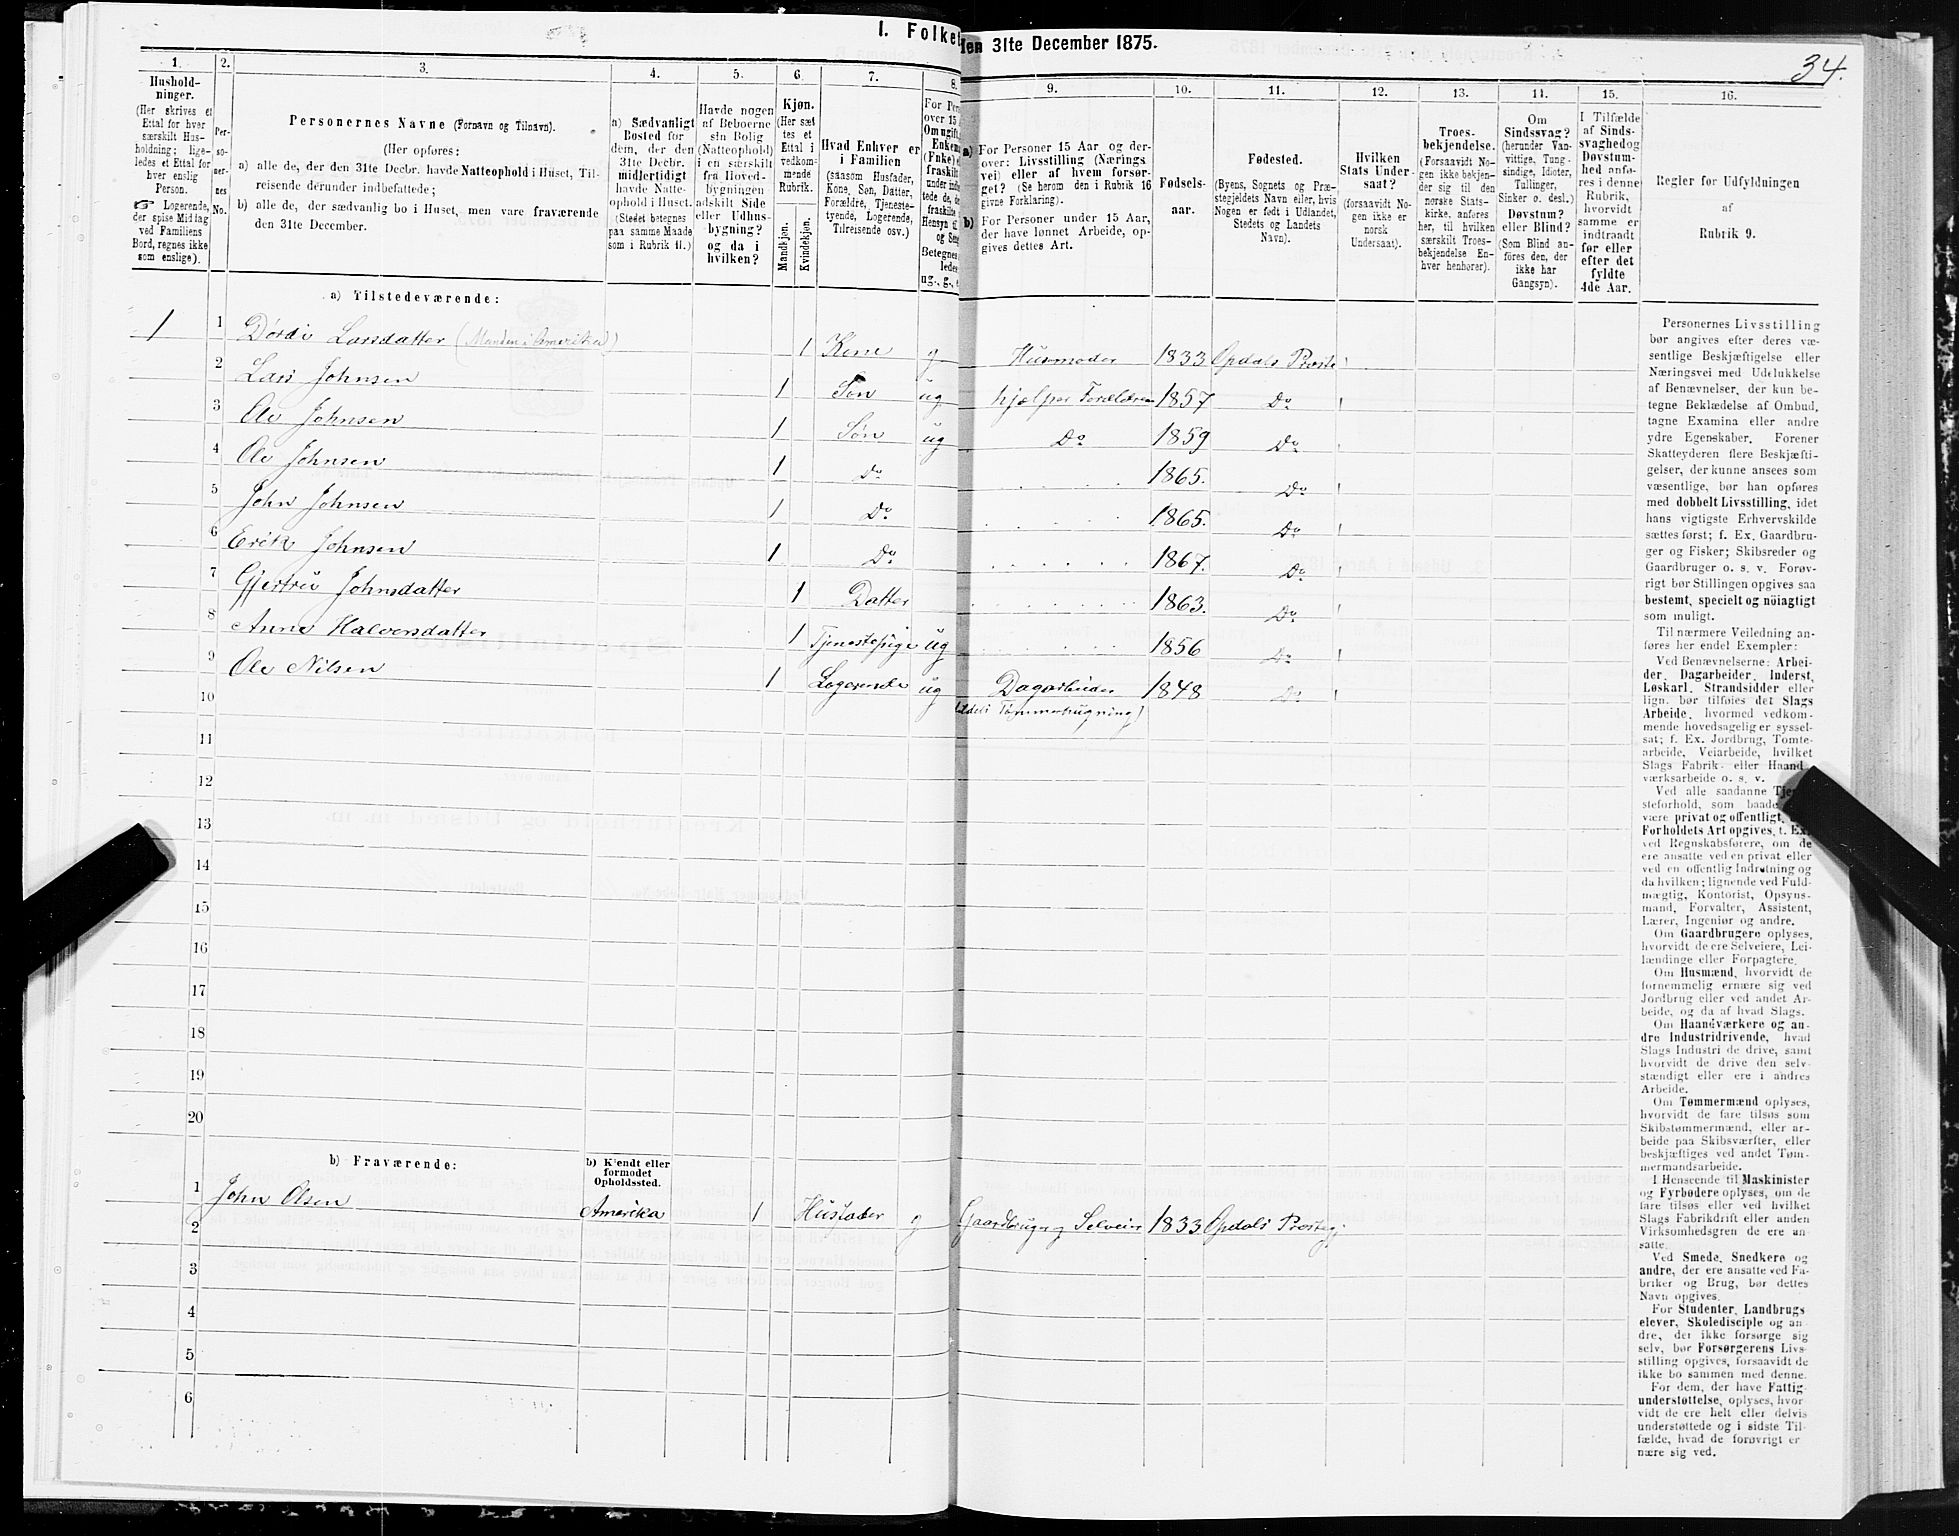 I. Folket
den 31te December 1875.
34.
1.
Hushold-
ninger.
(Her skrives et
Ettal for hver
særskilt Hus-
holdning; lige-
ledes et Ettal for
hver enslig
Person.
Logerende,
der spise Middag
ved Familiens
Bord, regnes ikke
som enslige).
2.
Per-
so-
ner-
nes
No.
3.
Personernes Navne (Fornavn og Tilnavn).
(Her opføres:
a) alle de, der den 31te Decbr. havde Natteophold i Huset, Til-
reisende derunder indbefattede;
b) alle de, der sædvanlig bo i Huset, men vare fraværende
den 31te December.
4.
a) Sædvanligt
Bosted for
dem, der den
31te Decbr.
midlertidigt
havde Natte-
ophold i Huset.
(Stedet betegnes
paa samme Maade
som i Rubrik 11.)
5.
Havde nogen
af Beboerne
sin Bolig
(Natteophold)
i en særskilt
fra Hoved-
bygningen
adskilt Side
eller Udhus-
bygning?
og da i
hvilken?
6.
Kjøn.
(Her sæt
tes et
Ettal i
vedkom-
mende
Rubrik.
Mandkjøn.
Kvindekjøn.
7.
Hvad Enhver er
i Familien
(saasom Husfader,
Kone, Søn, Datter,
Forældre, Tjeneste-
tyende, Logerende,
Tilreisende osv.)
8.
For Per
over 15
Om ugift,
Enkem
(Enke) e
fraskilt
9.
a) For Personer 15 Aar og der-
over: Livsstilling (Nærings
vei) eller af hvem forsør-
get? (Se herom den i Rubrik 16
givne Forklaring).
b) For Personer under 15 Aar,
der have lønnet Arbeide, op-
gives dettes Art.
10.
Fødsels-
aar.
11.
Fødested.
(Byens, Sognets og Præ-
stegjeldets Navn eller, hvis
Nogen er født i Udlandet,
Stedets og Landets
Navn).
12.
Hvilken
Stats Under-
saat?
(forsaavidt No-
gen ikke er
norsk
Undersaat).
13.
Troes-
bekjendelse.
(Forsaavidt No-
gen ikke bekjen-
der sig til den
norske Stats-
kirke, anføres
her, til hvilken
særskilt Troes-
bekjendelse En-
hver henhører).
14.
Om
Sindssvag?
(herunder Van-
vittige, Tung-
sindige, Idioter,
Tullinger,
Sinker o. desl.)
Døvstum?
eller Blind?
(Som Blind an-
føres den, der
ikke har
Gangsyn).
15.
I Tilfælde
af Sinds-
svaghed og
Døvstum-
hed anfø-
res i denne
Rubrik,
hvorvidt
samme er
indtraadt
før eller
efter det
fyldte
4de Aar.
16.
Regler før Udfyldningen
af
Rubrik 9.
a) Tilstedeværende:
1 1 Dordi Larsdatter (Manden i Amerika) 1 Kone g Husmoder 1833 Opdals Præste
2 Lars Johnsen 1 Søn ug hjelper Forældrene 1857 Do
3 Ole Johnsen 1 Søn ug Do 1859 Do
4 Ole Johnsen 1 Do 1865. Do
5 John Johnsen 1 Do 1865. Do
6 Erik Johnsen 1 Do 1867. Do
7 Gjertru Johnsdatter 1 Datter 1863. Do
8 Anne Halvorsdatter 1 Tjenestepige ug 1856 Do
9 Ole Nilsen 1 Logerende ug Dagarbeider 1848 Do
10 Tømmerhugning)
11
12
13
14
15
16
17
18
19
20
b) Fraværende:
b) Kjendt eller
formodet
Opholdssted.
1 John Olsen Amerika 1 Husfader g Gaardbruger Selveier 1833 Opdals Præstegj.
2
3
4
5
6
Personernes Livsstilling
bør angives efter deres væ-
sentlige Beskjæftigelse eller
Næringsvei med Udelukkelse
af Benævnelser, der kun be-
tegne Beklædelse af Ombud,
tagne Examina eller andre
ydre Egenskaber. Forener
Skatteyderen flere Beskjæfti-
gelser, der kunne ansees som
væsentlige, bør han opføres
med dobbelt Livsstilling, idet
hans vigtigste Erhvervskilde
sættes først; f. Ex. Gaardbru-
ger og Fisker; Skibsreder og
Gaardbruger o. s. v. Forøv-
rigt bør Stillingen opgives saa
bestemt, specielt og nöiagtigt
som muligt.
Til nærmere Veiledning an-
føres her endel Exempler:
Ved Benævnelserne: Arbei-
der, Dagarbeider, Inderst,
Løskarl, Strandsidder eller
lign. bør tilføies det Slags
Arbeide, hvormed vedkom-
mende hovedsagelig er syssel-
sat; f. Ex. Jordbrug, Tomte-
arbeide, Veiarbeide, hvilket
Slags Fabrik- eller Haand
værksarbeide o. s. v.
Ved alle saadanne
steforhold, som baade
være privat og offentligt,
Forholdets Art opgives, t. Ex.
ved Regnskabsførere, om de
ere ansatte ved en privat eller
ved en offentlig Indretning og
da hvilken; lignende ved Fuld-
mægtig, Kontorist, Opsyns-
mand, Forvalter, Assistent,
Lærer, Ingeniør og andre.
Om Gaardbrugere oplyses,
hvorvidt de ere Selveiere, Lei-
lændinge eller Forpagtere.
Om Husmænd, hvorvidt de
fornemmelig ernære sig ved
Jordbrug eller ved andet Ar-
beide, og da af hvad Slags.
Om Haandværkere og an-
dre Industridrivende, hvad
Slags Industri de drive, samt
hvorvidt de drive den selv-
stændigt eller ere i andres
Arbeide.
Om Tømmermænd oplyses,
hvorvidt de fare tilsøs som
Skibstømmermænd, eller ar-
beide paa Skibsværfter, eller
beskjæftiges ved andet Tøm-
mermandsarbeide.
I Henseende til Maskinister
og Fyrbødere oplyses, om de
fare tilsøs eller ved hvilket
Slags Fabrikdrift eller anden
Virksomhedsgren de ere an-
satte.
Ved Smede, Snedkere og
andre, der ere ansatte ved Fa-
briker og Brug, bør dettes
Navn opgives.
For Studenter, Landbrugs
elever, Skoledisciple og an-
dre, der ikke forsørge sig
selv, bør Forsørgerens Livs-
stilling opgives, forsaavidt de
ikke bo sammen med denne.
For dem, der have Fattig-
understøttelse, oplyses, hvor
vidt de ere helt eller delvis
understøttede og i sidste Til-
fælde, hvad de forøvrigt er
nære sig ved.